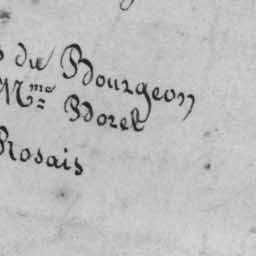 du Bourgeon
Mme Borel
Rosais